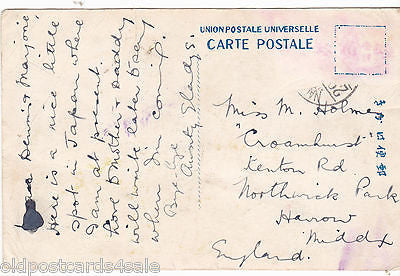 UNION POSTALE UNIVERSELLE
CARTE POSTALE
Dear Dennis & Marjorie
Here is a nice little
spot in Japan where
I am at present.
Love to Mother & Daddy
will write later & say
when I'm coming.
Bye bye
Aunty Gladys.
Miss M. Holmes
"Croamhurst"
Kenton Rd
Northwick Park
Harrow
Middx
England.
きかは便郵
oldpostcards4sale